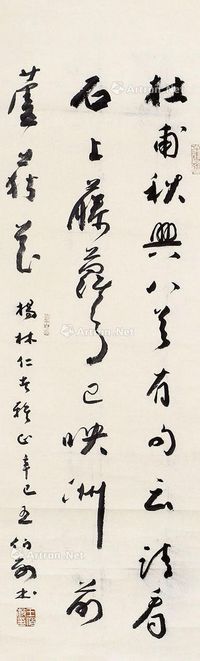 杜甫秋興八首有句云請看
石上藤蘿月已映洲前
蘆荻花
楊林仁者雅正辛巳王伯敏书